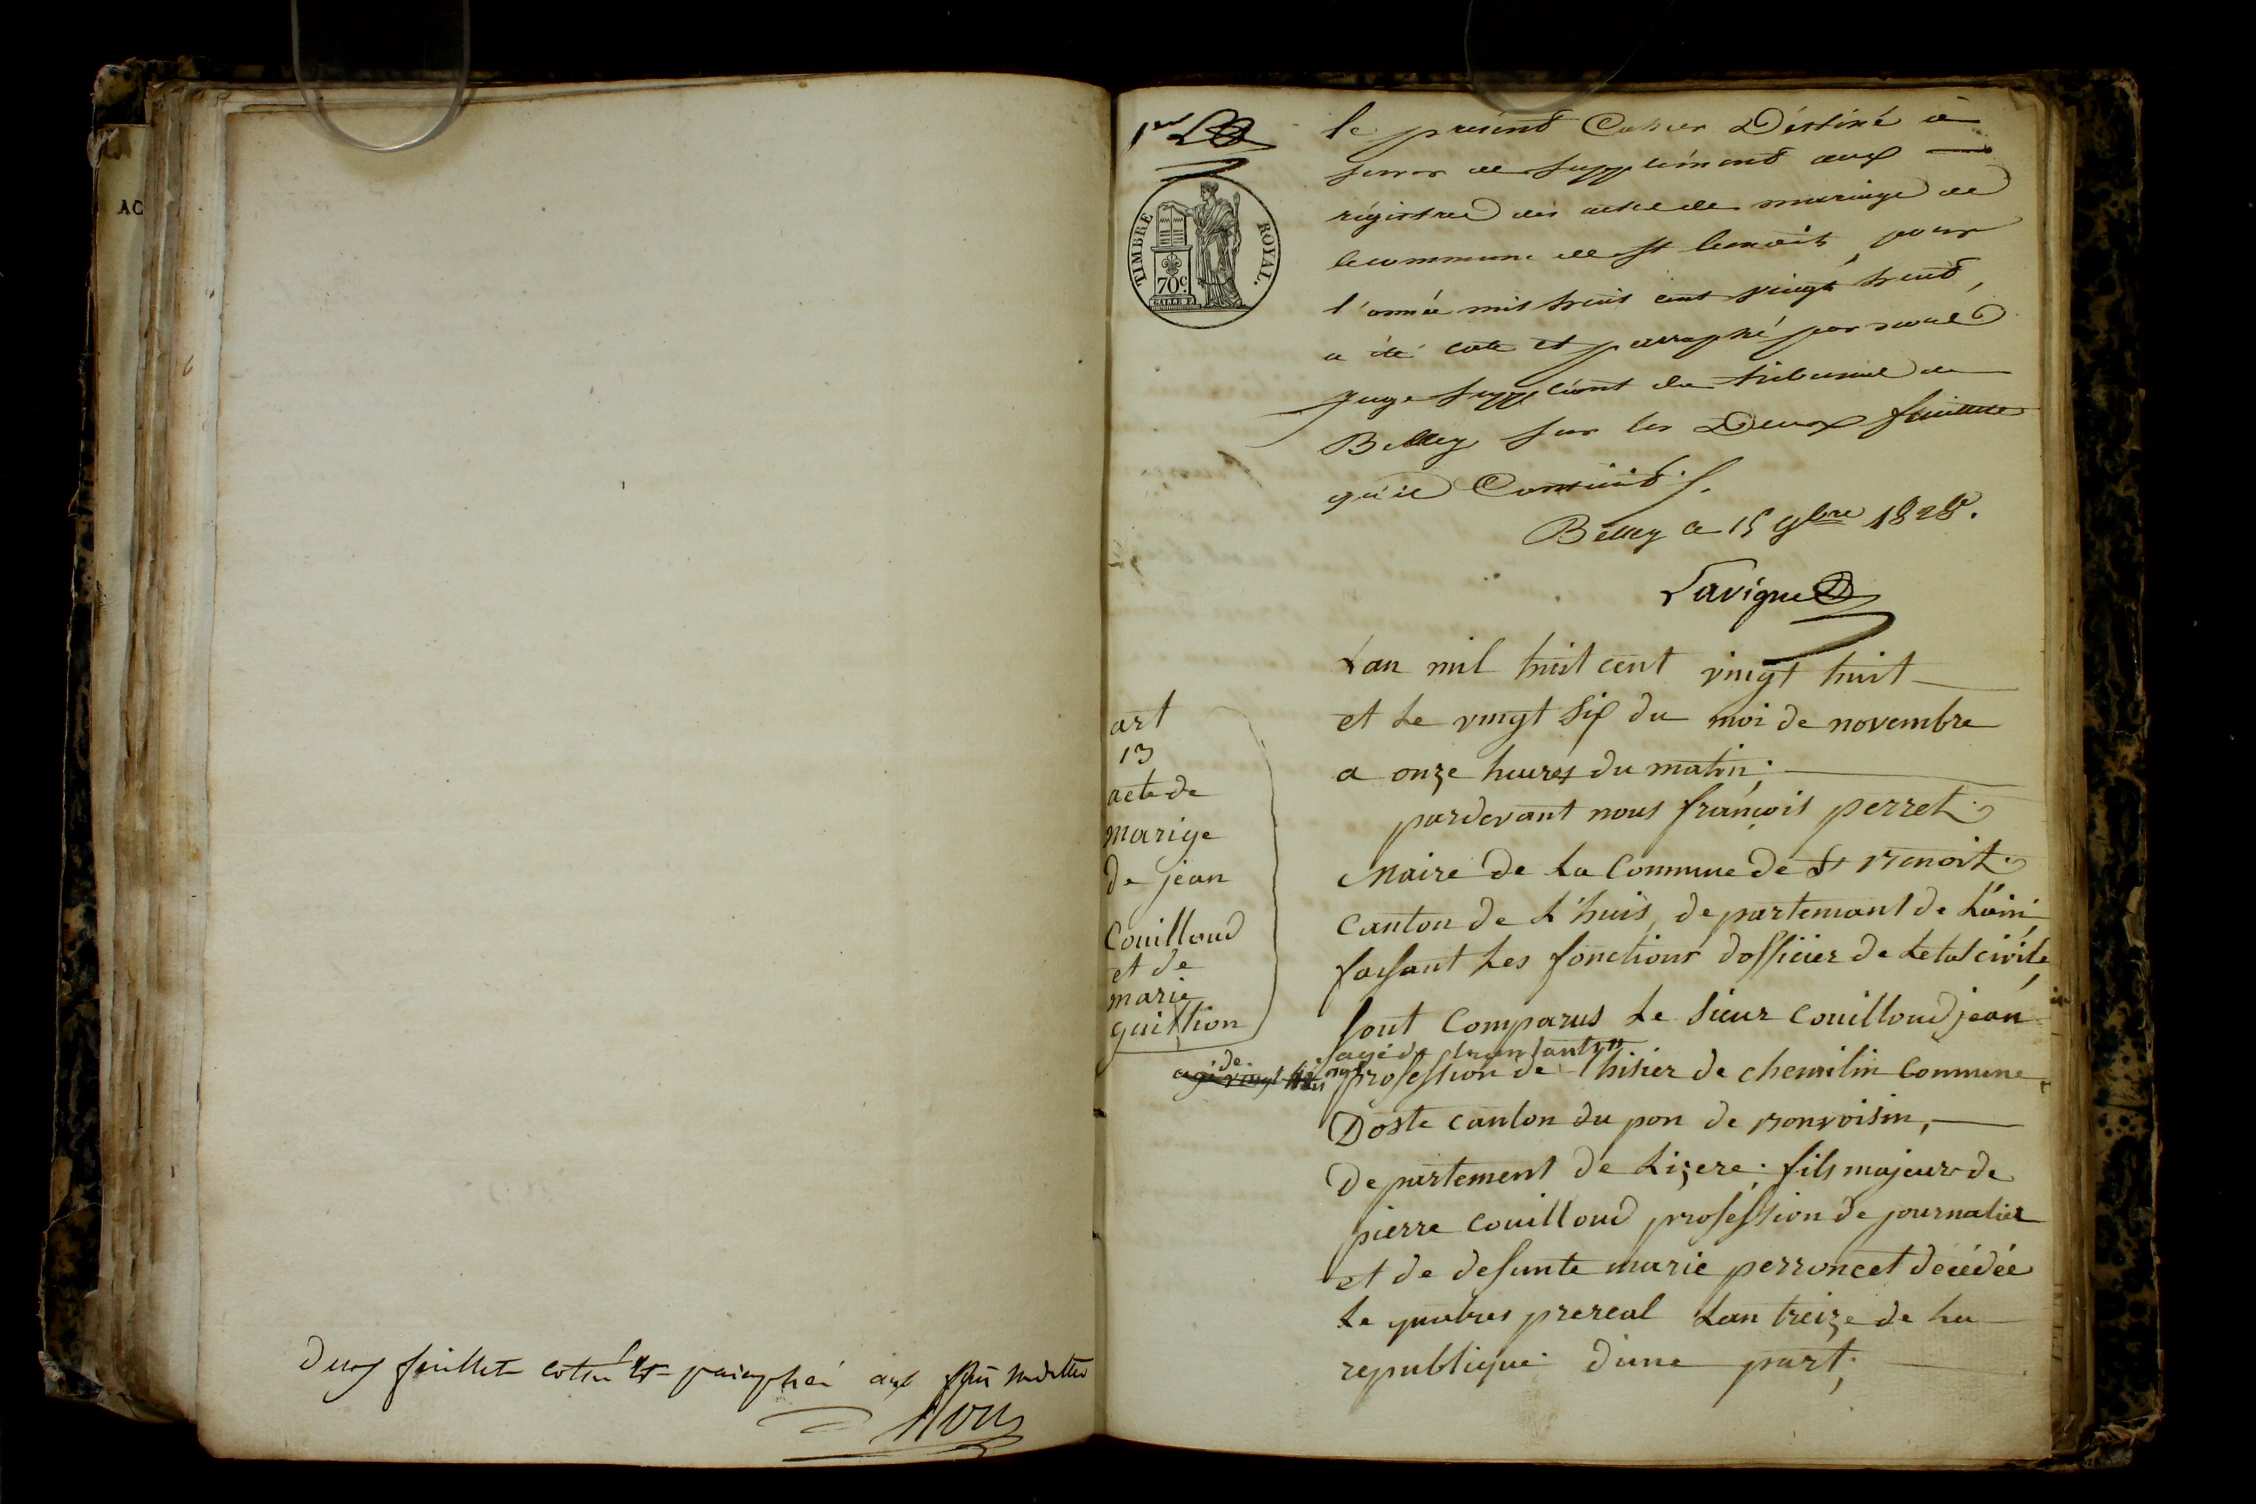 AC
Deux feuillets cotés et paraphés aux fins susdites
1er
TIMBRE ROYAL.
70c.
le présent Cahier Déstiné à
servir de supplément aux
régistres des actes de mariage de
la commune de st benoit, pour
l'année mil huit cent vingt huit,
a été coté et parraphé par nous
juge suppléant du tribunal de
Belley sur les Deux feuillets
qu'il Contient.
Belley ce 15 9bre 1828.
Lavigne
Lan mil huit cent vingt huit
et Le vingt six du moi de novembre
a onze heures du matin;
pardevant nous françois perret
Maire de La Commune de St Benoit
Canton de L'huis, departemant de Lain,
faisant Les fonctions dofficier de Letat civile
sont Comparus Le sieur Couilloud jean
agé de trante
profession de thisier de chemilin Commune
Doste canton du pon de Bonvoisin,
Departement de Lizere; fils majeur de
pierre Couilloud profession de journalier
et de defunte marie perroncet décédée
Le quatres prereal Lan treize de La
republique d'une part;
art
13
acte de
marige
de jean
Couilloud
et de
marie
quittion
agé de vingt